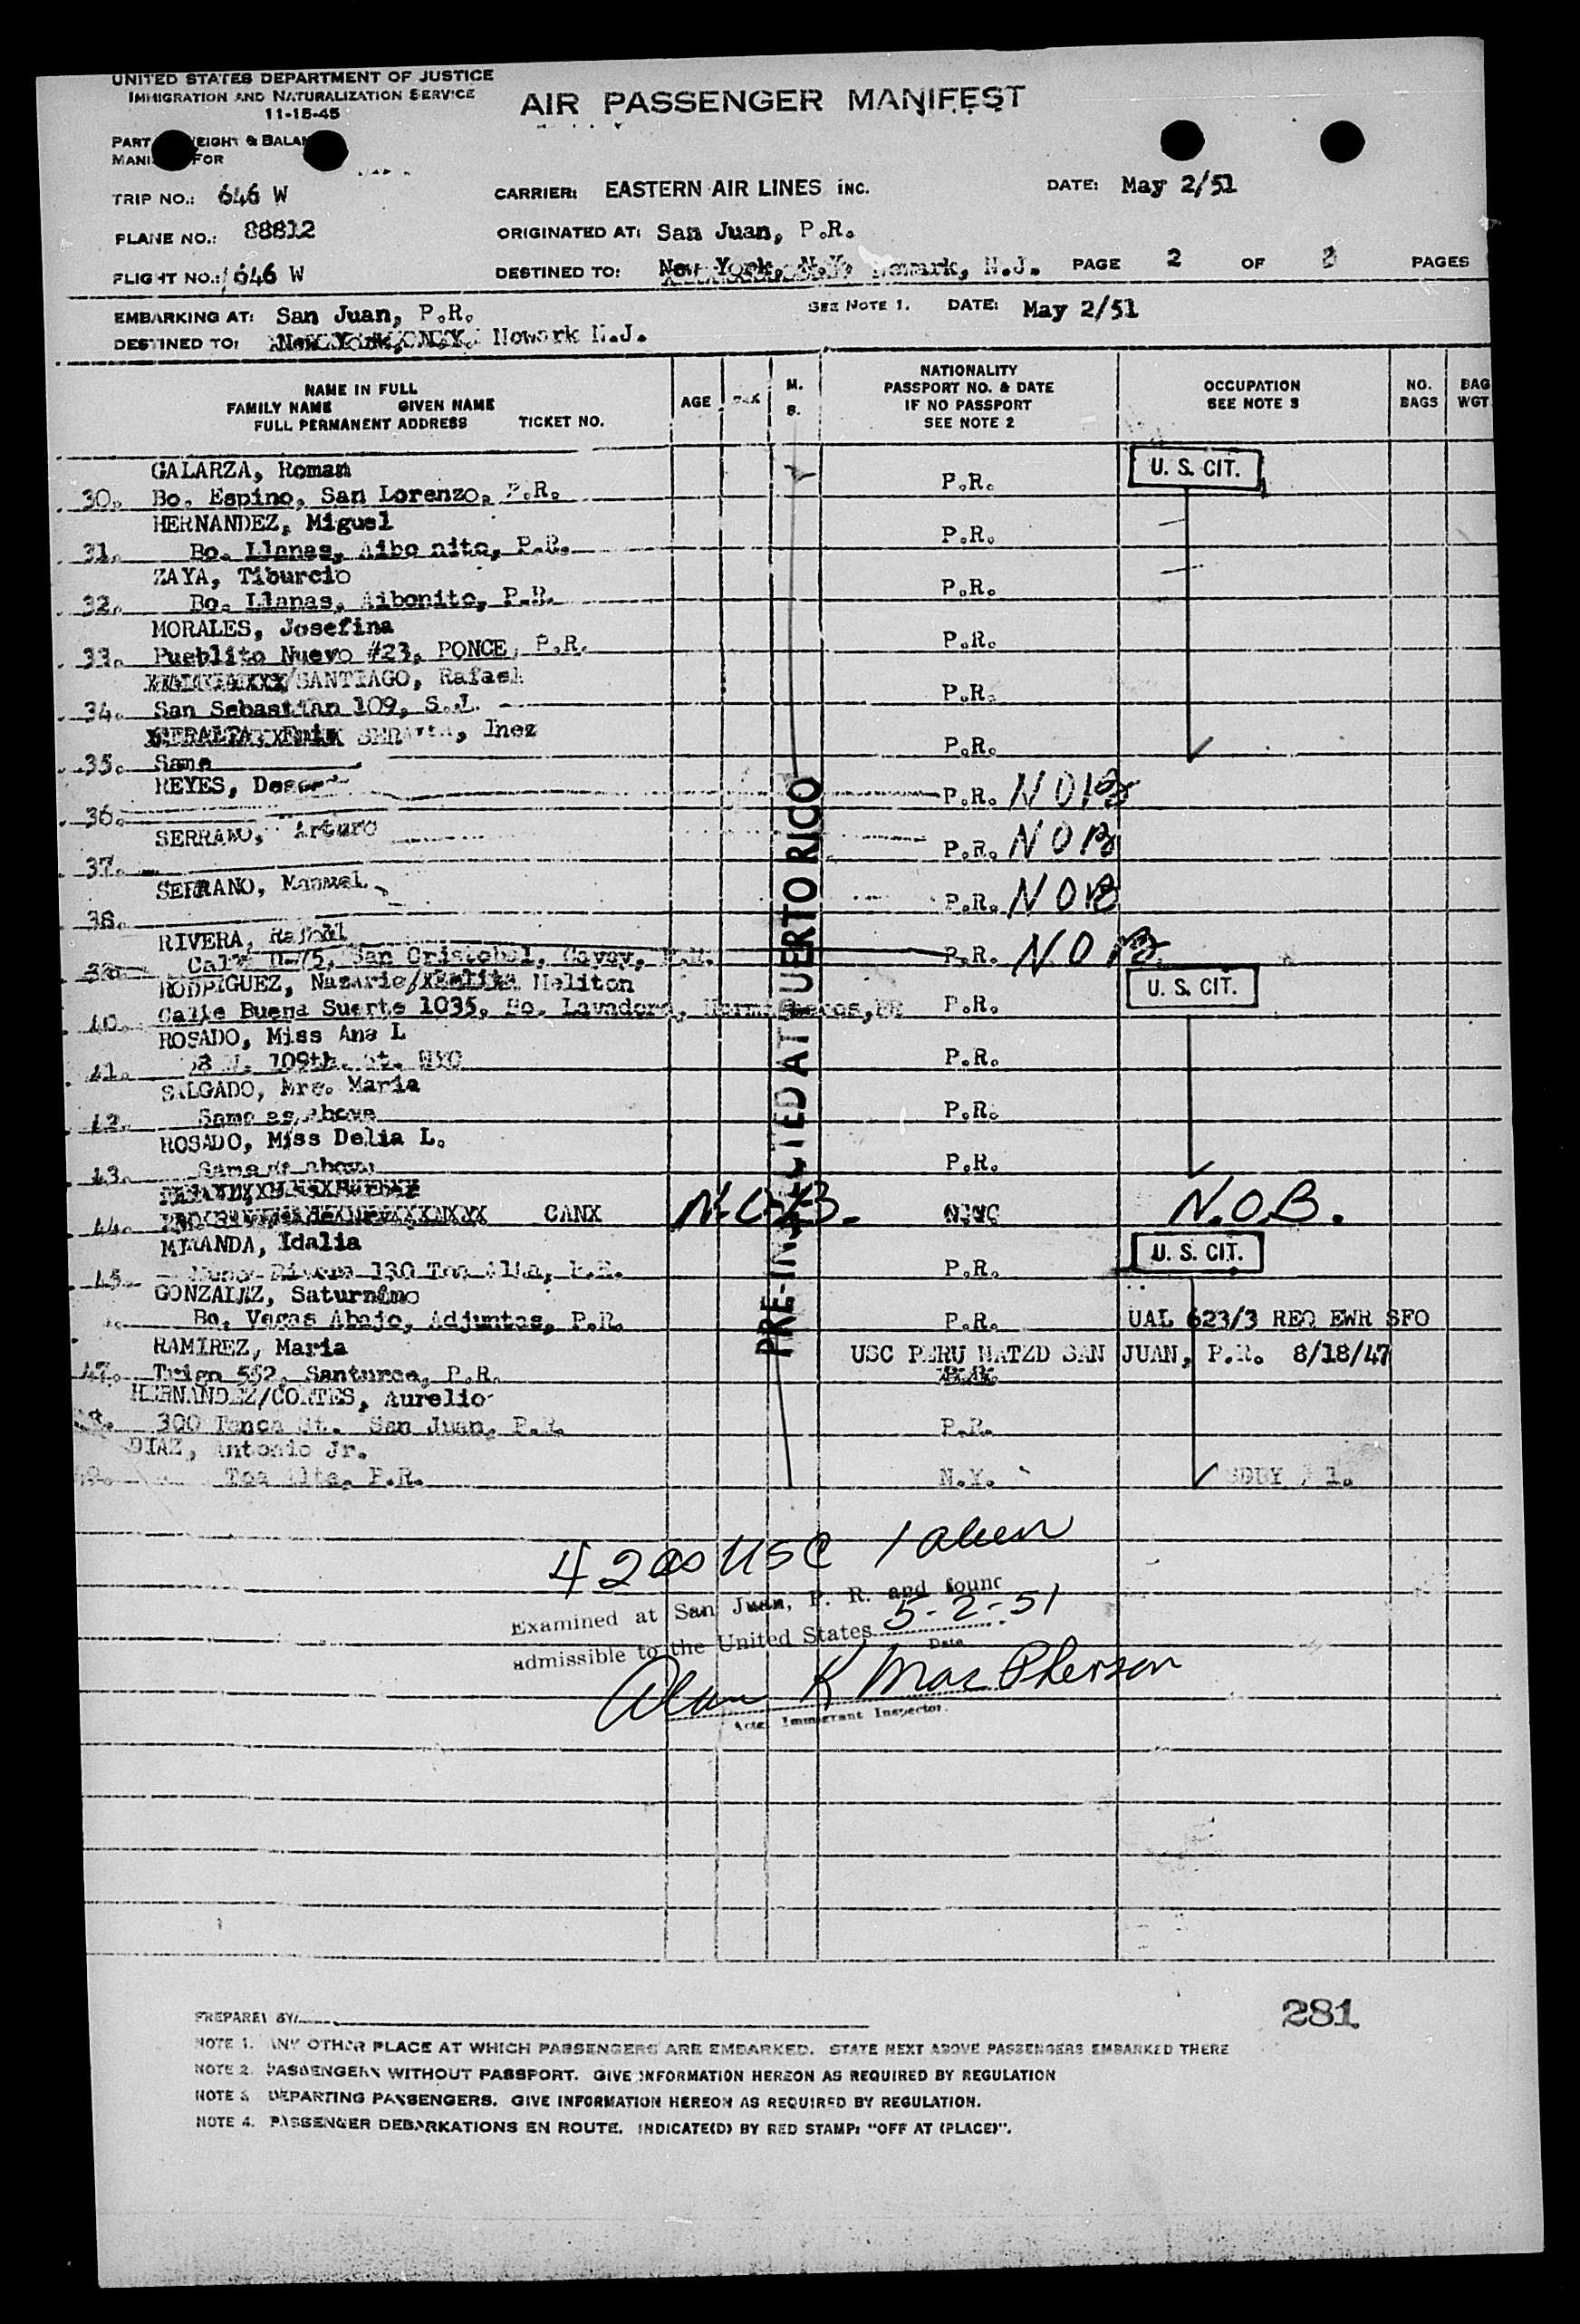 UNITED STATES DEPARTMENT OF JUSTICE
IMMIGRATION AND NATURALIZATION SERVICE
11-15-45
AIR PASSENGER MANIFEST
PART WEIGHT & BALANCE
MANIFEST FOR
TRIP NO.: 646 W
CARRIER: EASTERN AIR LINES INC.
DATE: May 2/51
PLANE NO.: 88812
ORIGINATED AT: San Juan, P.R.
FLIGHT NO.: 646 W
DESTINED TO: New York, N.Y. Newark, N.J. PAGE 2 OF PAGES
EMBARKING AT: San Juan, P.R.
SEE NOTE 1. DATE: May 2/51
DESTINED TO: New York, N.Y. Newark N.J.
NAME IN FULL
FAMILY NAME GIVEN NAME
FULL PERMANENT ADDRESS TICKET NO.
AGE
SEX
M.
S.
NATIONALITY
PASSPORT NO. & DATE
IF NO PASSPORT
SEE NOTE 2
OCCUPATION
SEE NOTE 3
NO.
BAGS
BAG
WGT
GALARZA, Roman
30. Bo. Espino, San Lorenzo, P.R. P.R. U. S. CIT.
HERNANDEZ, Miguel
31. Bo. Llanas, Aibo nito, P.R. P.R.
ZAYA, Tiburcio
32. Bo. Llanas, Aibonito, P.R. P.R.
MORALES, Josefina
33. Pueblito Nuevo #23, PONCE, P.R. P.R.
/SANTIAGO, Rafael
34. San Sebastian 109, S.J. P.R.
Inez
35. Same P.R.
REYES,
36. P.R. NOB
SERRANO, Arturo
37. P.R. NOB
SERRANO, Manuel
38. P.R. NOB
RIVERA, Rafael
39. Calle D-75, San Cristobal, Cayey, P.R. P.R. NOB
RODRIGUEZ, Nazario/ Meliton
40. Calle Buena Suerte 1035, Bo. Lavadero, Hormigueros, PR P.R. U. S. CIT.
ROSADO, Miss Ana L
41. 109th. St. NYC P.R.
SALGADO, Mrs. Maria
42. Same as above P.R.
ROSADO, Miss Delia L.
43. Same as above P.R.
44. CANX N.O.B. N.O.B.
MIRANDA, Idalia
45. Munoz Rivera 130 Toa Alta, P.R. P.R. U. S. CIT.
GONZALEZ, Saturnino
Bo. Vegas Abajo, Adjuntas, P.R. P.R. UAL 623/3 REQ EWR SFO
RAMIREZ, Maria USC PERU NATZD SAN JUAN, P.R. 8/18/47
47. Trigo 552, Santurce, P.R.
HERNANDEZ/CORTES, Aurelio
48. 300 Tanca St. San Juan, P.R. P.R.
DIAZ, Antonio Jr.
49. Toa Alta, P.R. N.Y.
PRE-INSPECTED AT PUERTO RICO
42 as USC 1 alien
Examined at San Juan, P. R. and found
admissible to the United States 5-2-51
Date
Alan K MacPherson
Actg. Immigrant Inspector.
281
PREPARED BY:
NOTE 1. ANY OTHER PLACE AT WHICH PASSENGERS ARE EMBARKED. STATE NEXT ABOVE PASSENGERS EMBARKED THERE
NOTE 2. PASSENGERS WITHOUT PASSPORT. GIVE INFORMATION HEREON AS REQUIRED BY REGULATION
NOTE 3. DEPARTING PASSENGERS. GIVE INFORMATION HEREON AS REQUIRED BY REGULATION.
NOTE 4. PASSENGER DEBARKATIONS EN ROUTE. INDICATE(D) BY RED STAMP: "OFF AT (PLACE)".